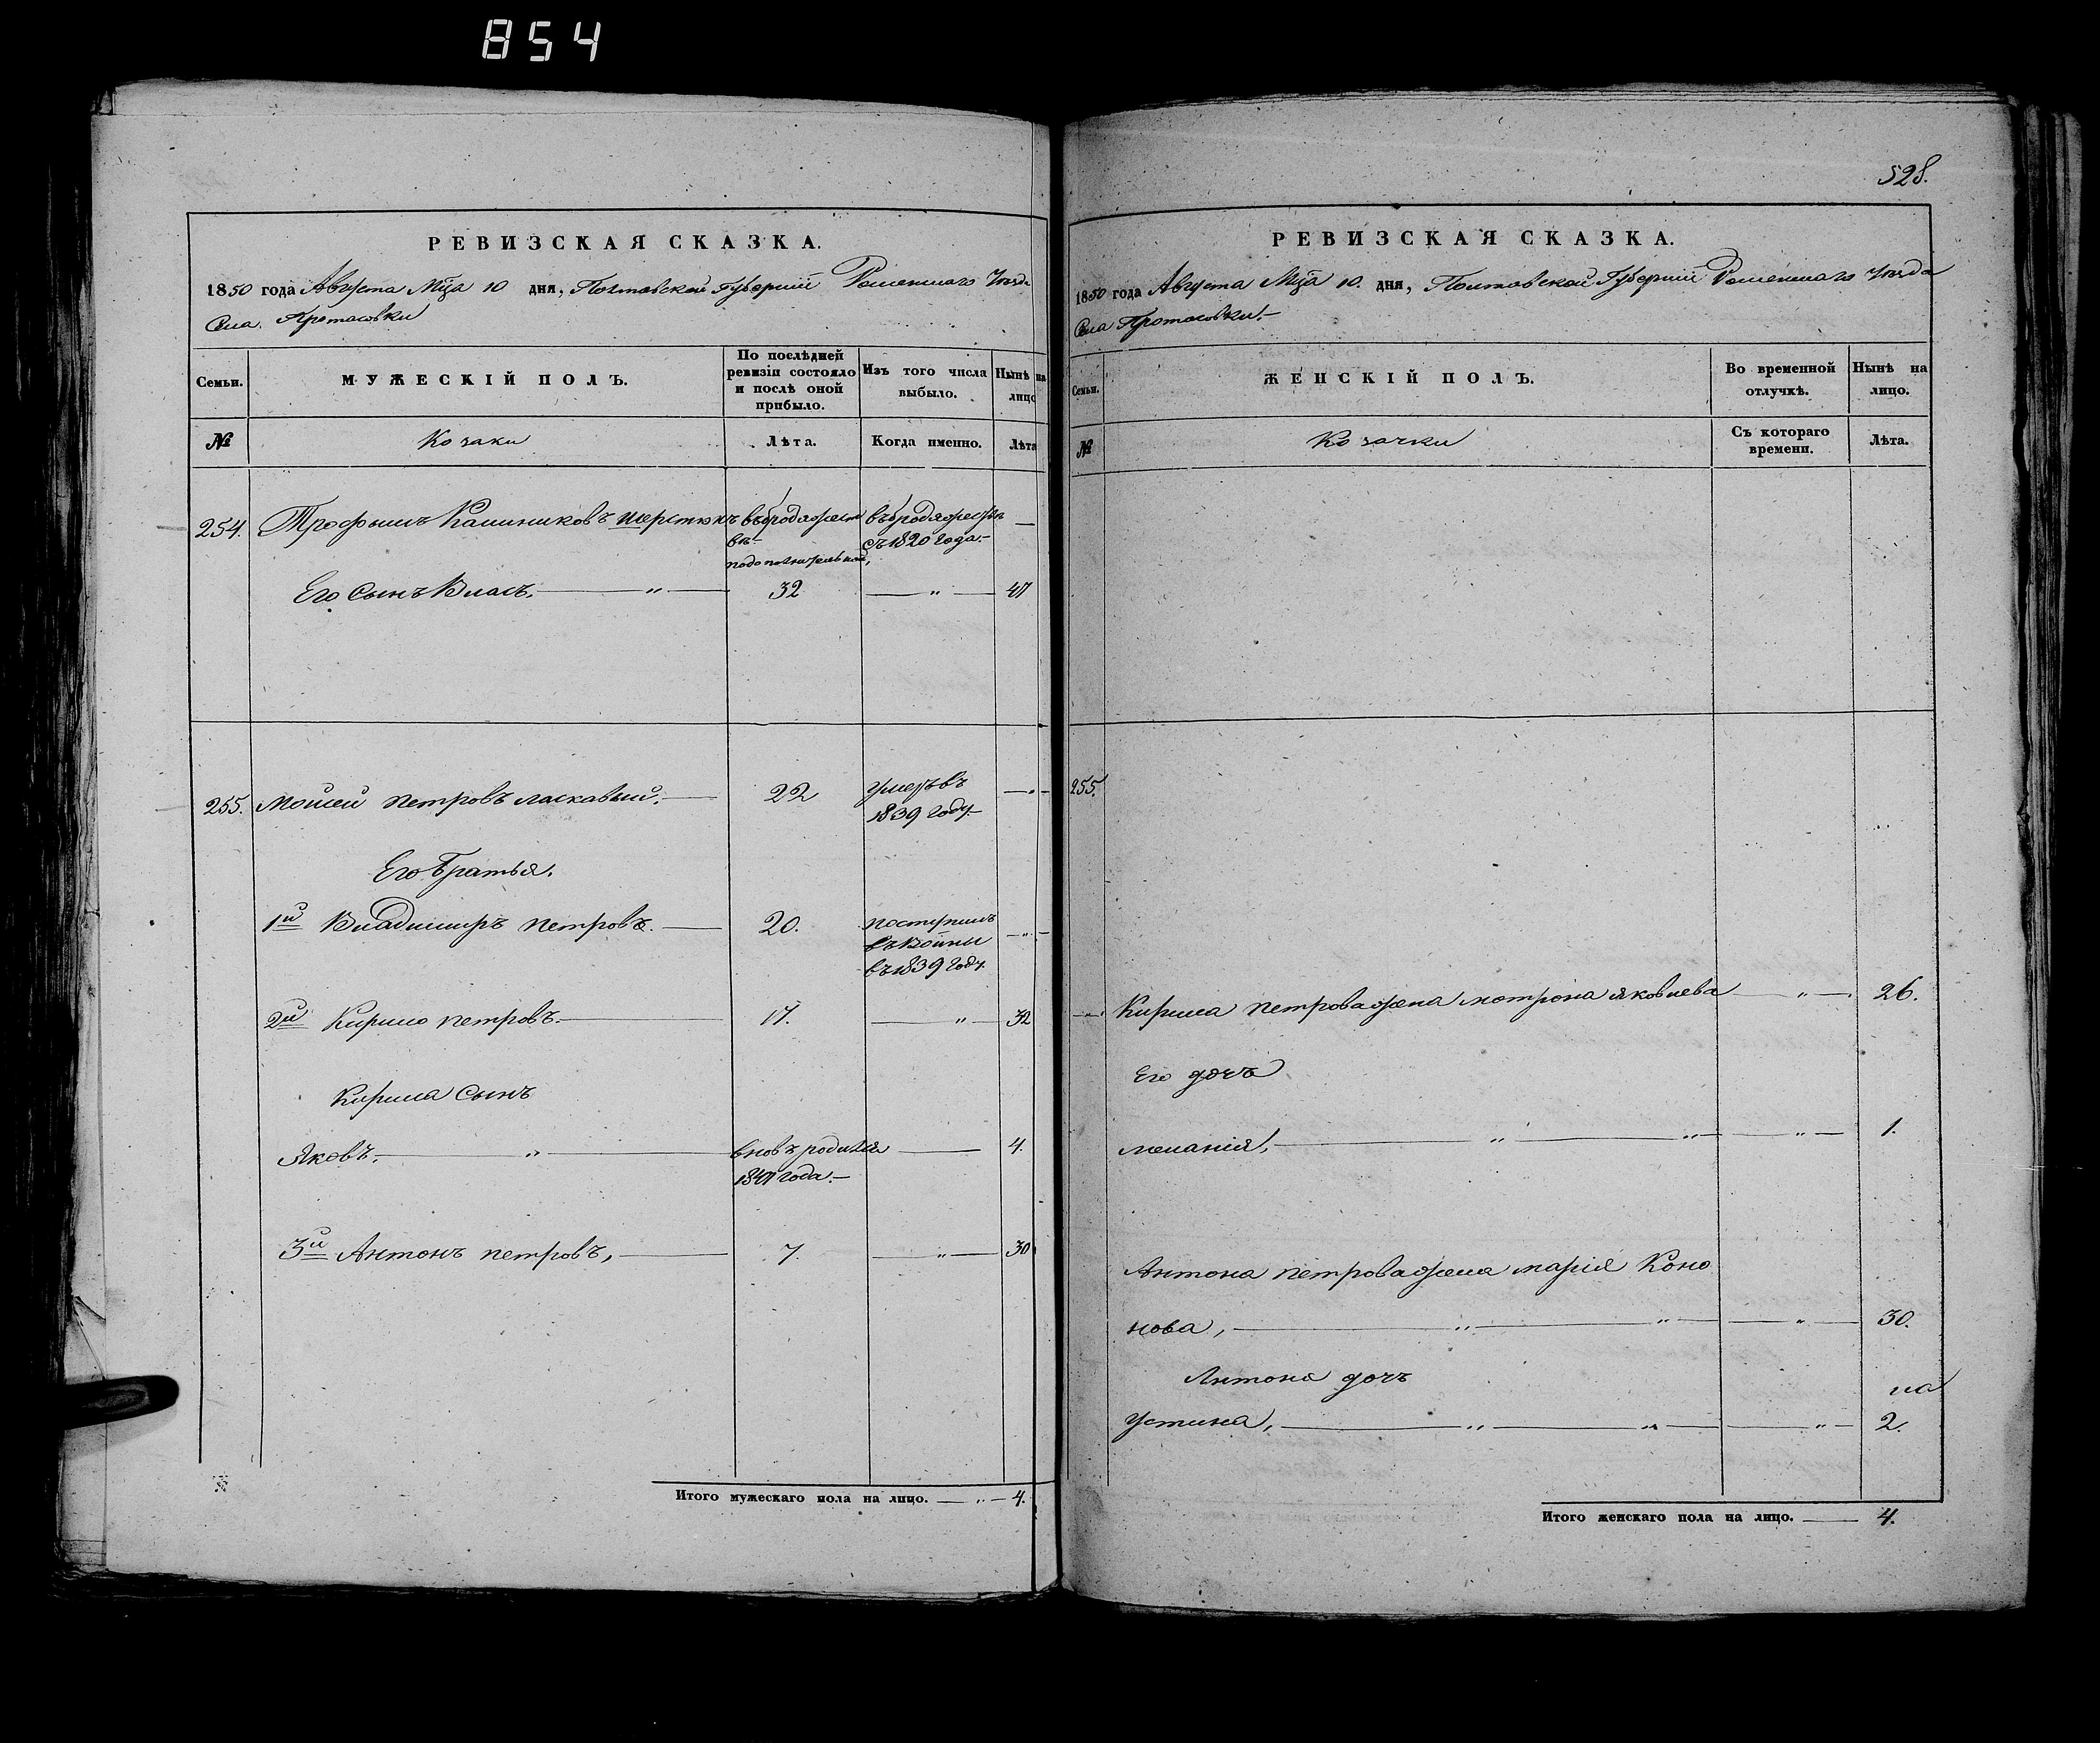 854
РЕВИЗСКАЯ СКАЗКА.
1850 года Августа Мца 10 дня, Полтавской Губерніи Роменскаго Уезда
Села Протасовки
Семьи.
МУЖЕСКІЙ ПОЛЪ.
По послѣдней ревизіи состояло и послѣ оной прибыло.
Изъ того числа выбыло.
Нынѣ на лицо
№
Козаки
Лѣта.
Когда именно.
Лѣта
254. Трофымъ Калиниковъ Шерстюкъ въ бродяжест въ бродяжествѣ —
съ 1820 года.—
Его Сынъ Власъ. — „ — 32 — „ — 47
255. Мойсей петровъ ласкавый. — 22 умеръ въ — „ —
1839 году —
Его Братья.
1й Владимиръ петровъ. — 20. поступилъ — „ —
въ 1839 году
2й Кирило петровъ. — 17. — „ — 32
Кирила Сынъ
Яковъ. — „ — вновь родился — 4.
года. —
3й Антонъ петровъ, — 7. — „ — 30
Итого мужескаго пола на лицо. — „ — 4.
528.
РЕВИЗСКАЯ СКАЗКА.
1850 года Августа Мца 10. дня, Полтавской Губерніи Роменскаго Уезда
Села Протасовки. —
Семьи.
ЖЕНСКІЙ ПОЛЪ.
Во временной отлучкѣ.
Нынѣ на лицо.
№
Козачки
Съ котораго времени.
Лѣта.
255.
Кирила петрова жена мотрона яковлева — „ — 26.
Его дочъ
меланія, — „ — „ — „ — 1.
Антона петрова жена марія Коно
нова, — „ — „ — „ — 30.
Антона дочъ
устина, — „ — „ — „ — 2.
Итого женскаго пола на лицо. — 4.